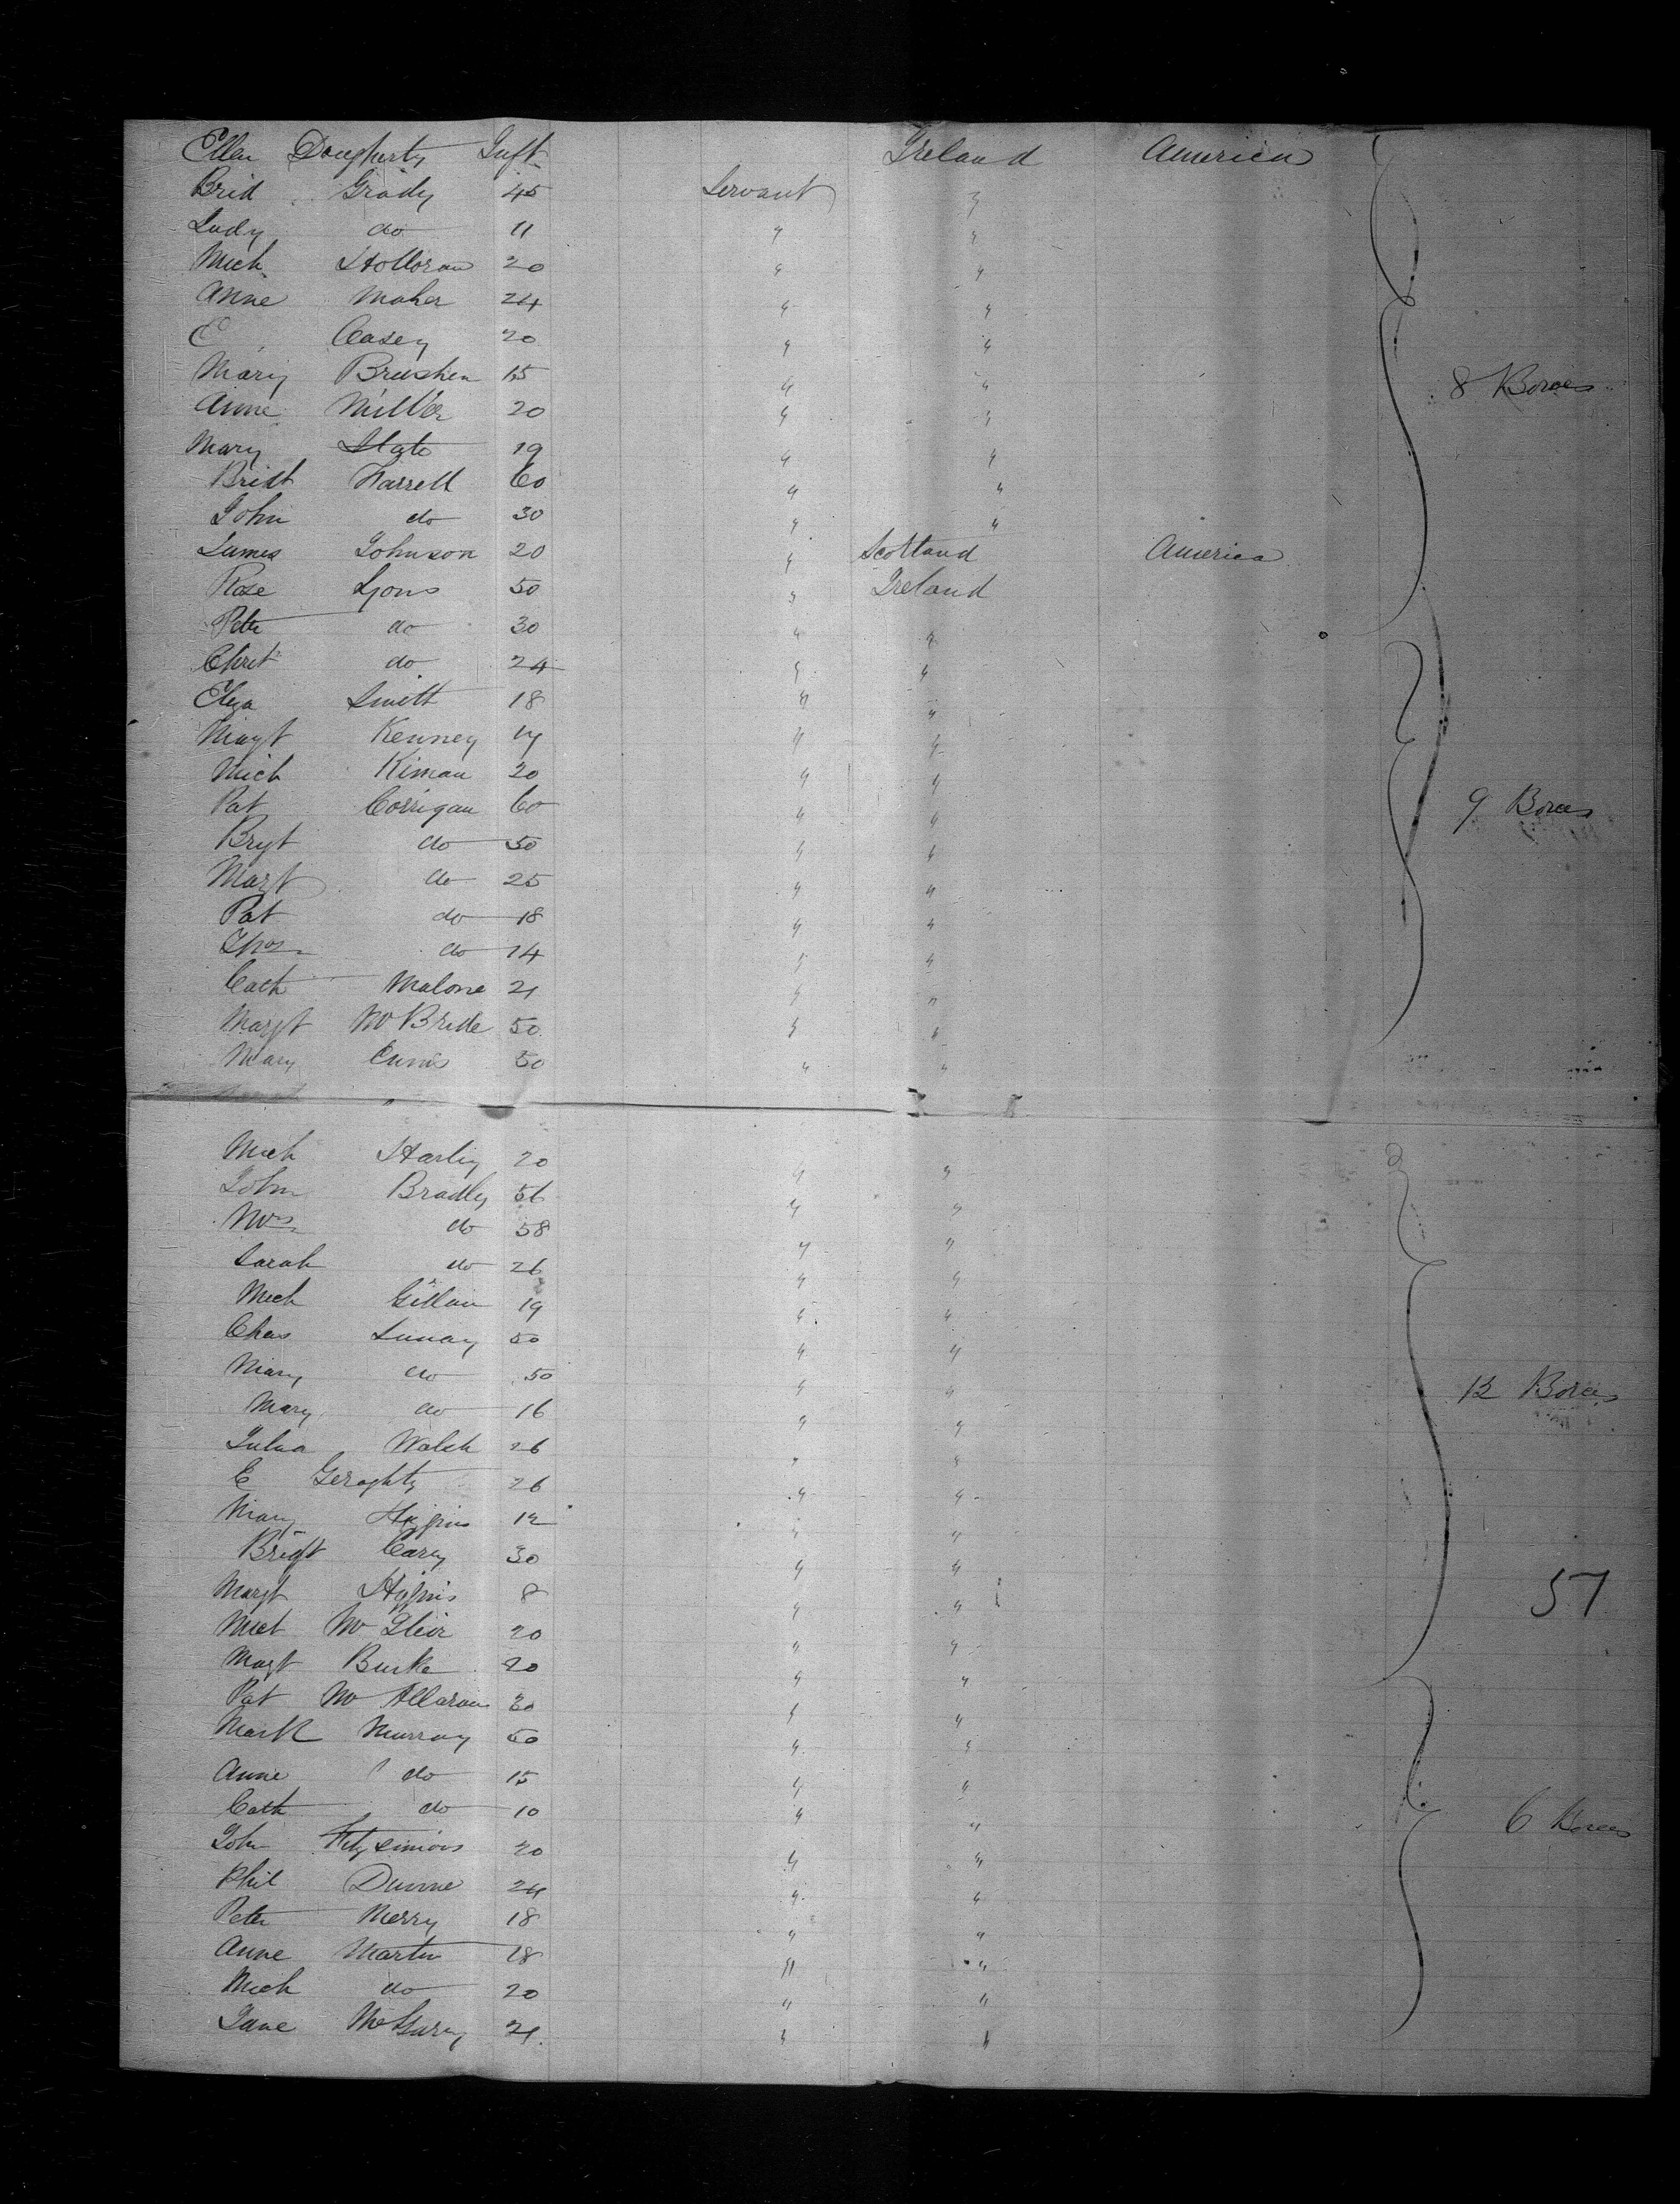 Ellen Dougherty Inft Ireland America
Brid Grady 45 Servant "
Judy do 11 " "
Mich Holloran 20 " "
Anne Maher 24 " "
E Casey 20 " "
Mary 15 " "
Anne Miller 20 " " 8 Boxes
Mary 19 " "
Bridt Farrell 60 " "
John do 30 " "
James Johnson 20 " Scotland America
Rose Lyons 50 " Ireland
Peter do 30 " "
Christ do 24 " "
Eliza Smith 18 " "
Margt Kenney 17 " "
Mich Kiman 20 " "
Pat Corrigan 60 " " 9 Boxes
Bryt do 50 " "
Margt do 25 " "
Pat do 18 " "
Thos do 14 " "
Cath Malone 21 " "
Margt McBride 50 " "
Mary Ennis 50 " "
Mich Harley 20 " "
John Bradly 56 " "
Mrs do 58 " "
Sarah do 26 " "
Mich Gillan 19 " "
Chas Lunay 50 " "
Mary do 50 " "
Mary do 16 " " 12 Boxes
Julia Walsh 26 " "
E Geraghty 26 " "
Mary Higgins 12 " "
Brigt Carey 30 " "
Margt Higgins 8 " " 57
Mict Mc 20 " "
Margt Burke 20 " "
Pat Mc 30 " "
Mark Murray 50 " "
Anne do 15 " "
Cath do 10 " "
John Fitzsimons 20 " " 6 Boxes
Phil Dunne 24 " "
Peter Merry 18 " "
Anne Martin 18 " "
Mich do 20 " "
Jane McGarry 21 " "